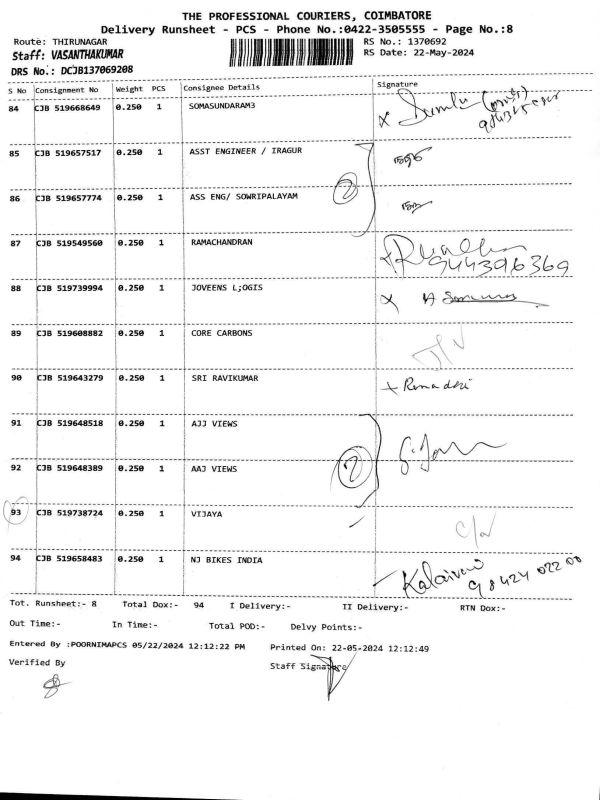 THE PROFESSIONAL COURIERS, COIMBATORE
Delivery Runsheet - PCS - Phone No.:0422-3505555 - Page No.:8
Route: THIRUNAGAR RS No.: 1370692
Staff: VASANTHAKUMAR RS Date: 22-May-2024
DRS No.: DCJB137069208
S No Consignment No Weight PCS Consignee Details Signature
84 CJB 519668649 0.250 1 SOMASUNDARAM3
85 CJB 519657517 0.250 1 ASST ENGINEER / IRAGUR
2
86 CJB 519657774 0.250 1 ASS ENG/ SOWRIPALAYAM
87 CJB 519549560 0.250 1 RAMACHANDRAN
944396369
88 CJB 519739994 0.250 1 JOVEENS L;OGIS
89 CJB 519608882 0.250 1 CORE CARBONS
90 CJB 519643279 0.250 1 SRI RAVIKUMAR
91 CJB 519648518 0.250 1 AJJ VIEWS
2
92 CJB 519648389 0.250 1 AAJ VIEWS
93 CJB 519738724 0.250 1 VIJAYA
94 CJB 519658483 0.250 1 NJ BIKES INDIA
Kalaivani
98424 02200
Tot. Runsheet:- 8 Total Dox:- 94 I Delivery:- II Delivery:- RTN Dox:-
Out Time:- In Time:- Total POD:- Delvy Points:-
Entered By :POORNIMAPCS 05/22/2024 12:12:22 PM Printed On: 22-05-2024 12:12:49
Verified By Staff Signature